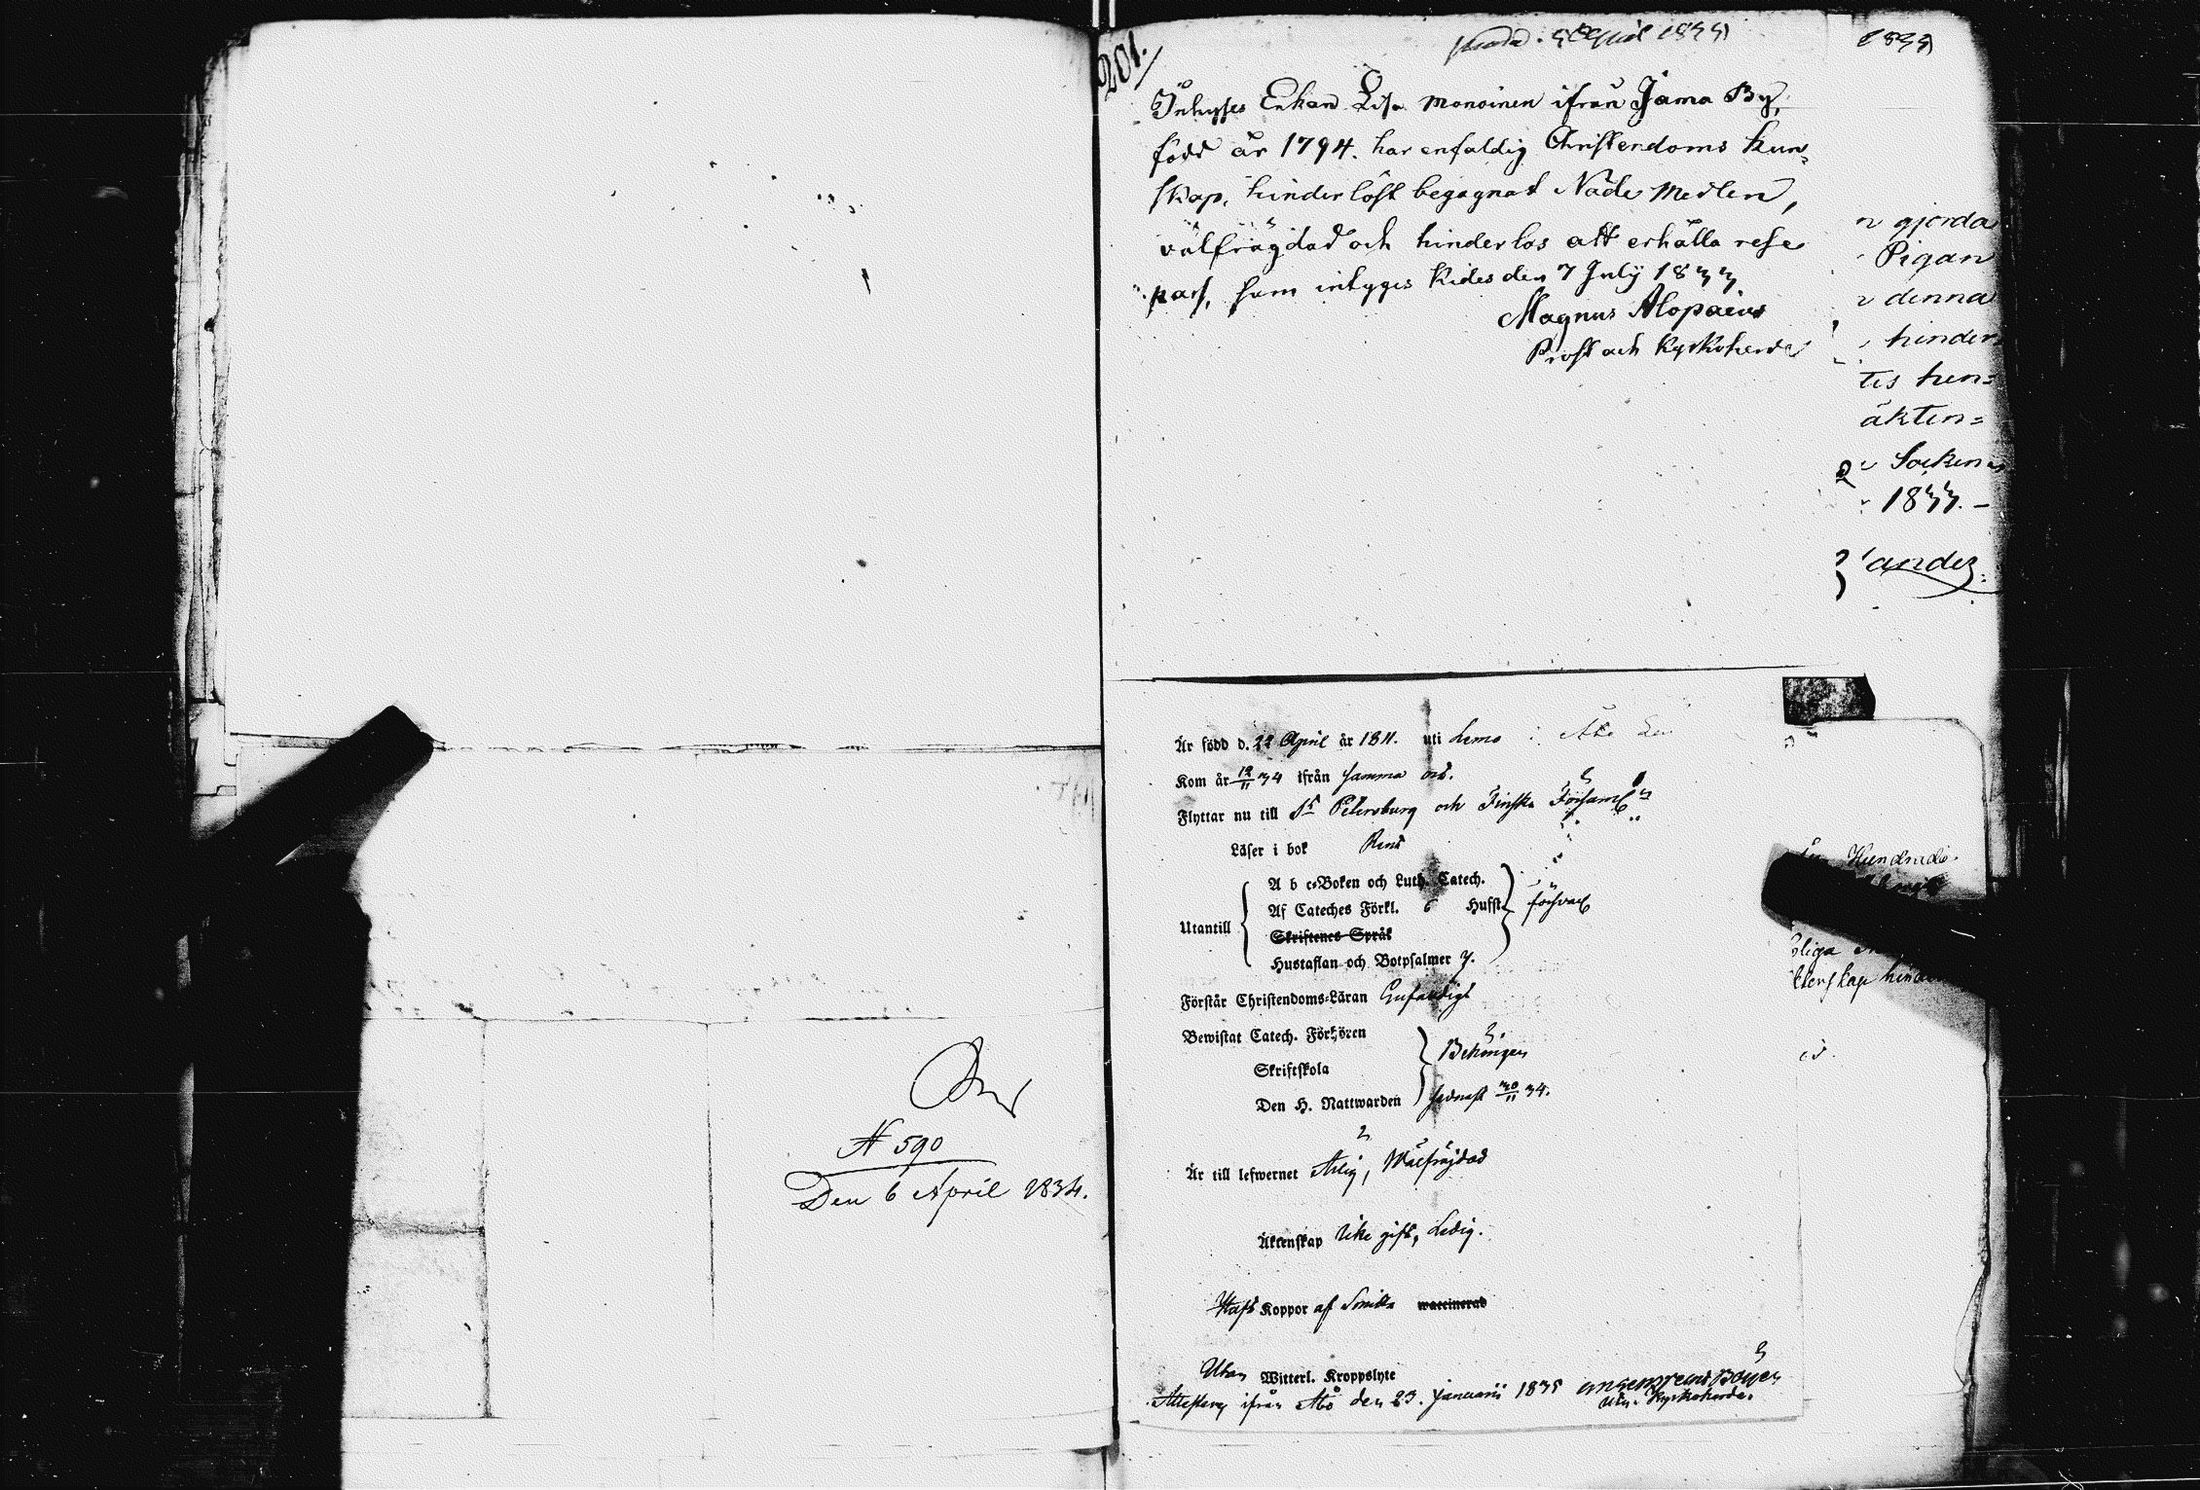 Den
N 590
Den 6 April 1834.
201.
1833
Inhyses Enkan Lisa Monoinen ifrån Jama By,
född år 1794. har enfaldig Christendoms kun=
skap, hinderlöst begagnat Nåde Medlen,
välfrägdad och hinderlös att erhålla rese
pass, som intygas Kides den 7 July 1833
Magnus Alopaeus
Prost och Kyrkoherde
gjorda
Pigan
denna
hinder
tes hen=
äkten=
Socken
1833. –
Är född d. 22 April år 1811. uti Lemo
Kom år 12/11 34 ifrån samma ort.
Flyttar nu till St Petersburg och Finska Församl
Läser i bok Rent
Utantill
A b c=Boken och Luth. Catech.
Af Cateches Förkl. 6 Hufst.
försvarl
Skriftenes Språk
Hustaflan och Botpsalmer 7.
Förstår Christendoms=Läran Enfaldigt
Bewistat Catech. Förhören
Skriftskola
Behörigen
Den H. Nattwarden sednast 30/11 34.
Är till lefwernet Ärlig, Wälfrejdad
Äktenskap Icke gift, Ledig.
Haft Koppor af Smitta waccinerad
Utan Witterl. Kroppslyte
Attesteras ifrån Åbo den 23. Januarii 1835
Kyrkoherde.
Hundrade